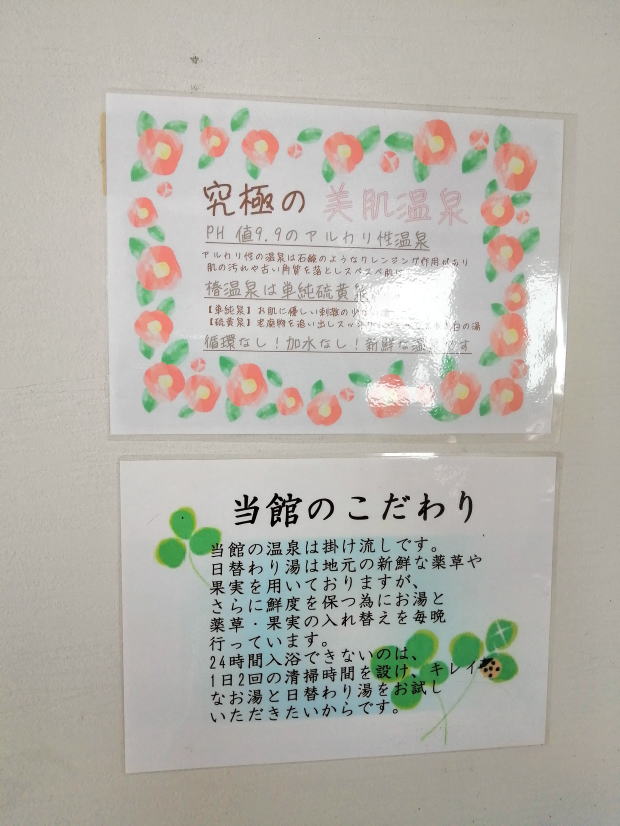 究極の 美肌温泉
PH 値9.9のアルカリ性温泉
アルカリ性の温泉は石鹸のようなクレンジング作用があり
肌の汚れや古い角質を落としスベスベ肌に
椿温泉は単純硫黄泉
【単純泉】お肌に優しい刺激の少
【硫黄泉】老廃物を追い出し 白の湯
循環なし!加水なし!新鮮な温泉です
当館のこだわり
当館の温泉は掛け流しです。
日替わり湯は地元の新鮮な薬草や
果実を用いておりますが、
さらに鮮度を保つ為にお湯と
薬草・果実の入れ替えを毎晩
行っています。
24時間入浴できないのは、
1日2回の清掃時間を設け、キレイ
なお湯と日替わり湯をお試し
いただきたいからです。